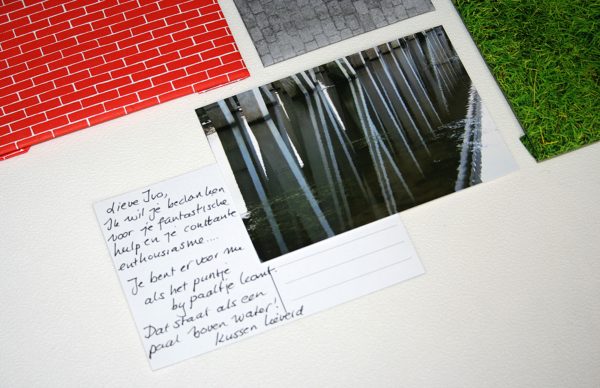 Lieve Ivo,
Ik wil je bedanken
voor je fantastische
hulp en je constante
enthousiasme....
Je bent er voor me
als het puntje
bij paaltje komt.
Dat staat als een
paal boven water!
kussen Lieveld